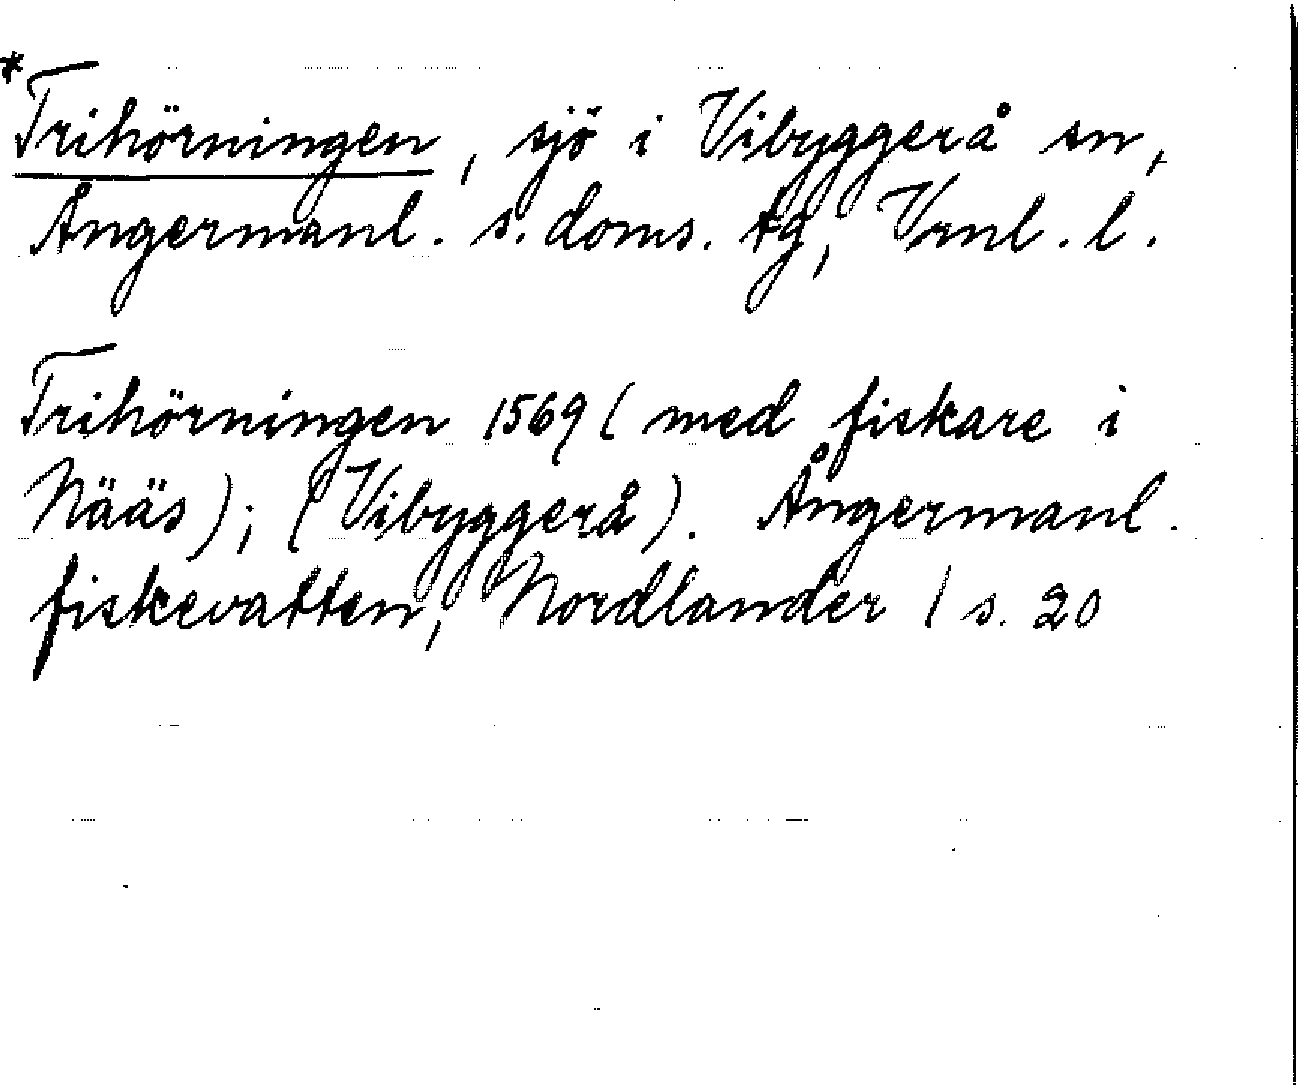 *Trihörningen, sjö i Vibyggerå sn,
Ångermanl. s. doms. tg, Vrnl. l.
Trihörningen 1569 (med fiskare i
Nääs); (Vibyggerå). Ångermanl.
fiskevatten, Nordlander / s. 20